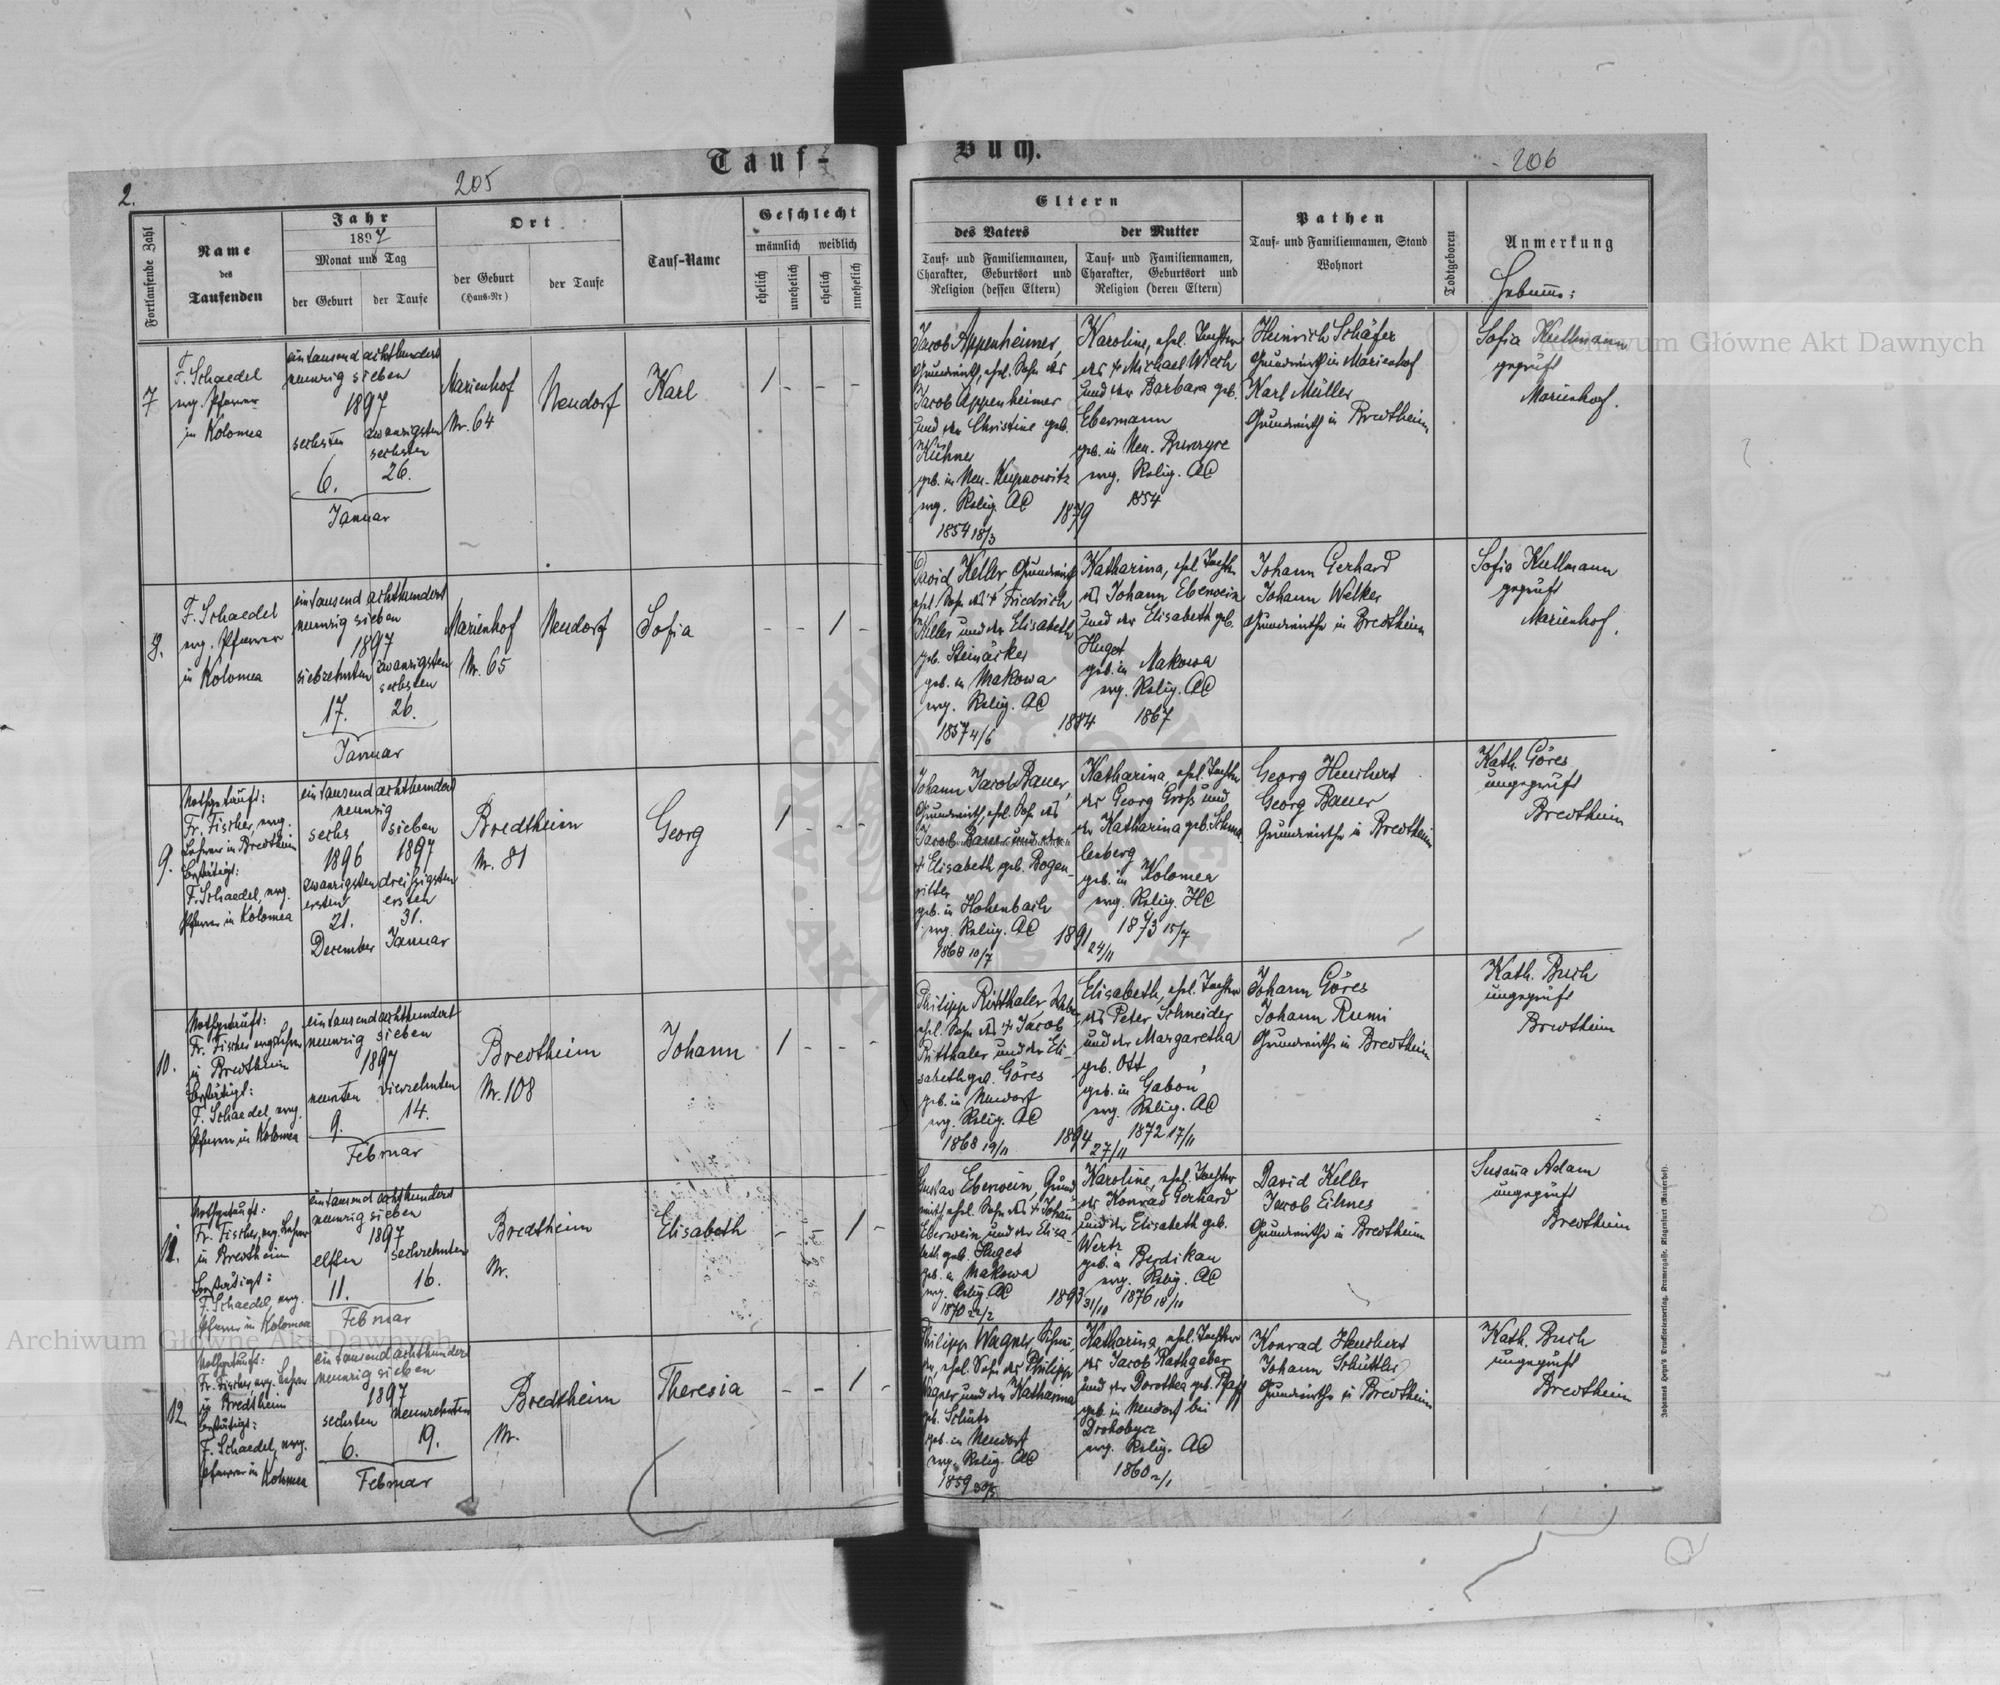 Tauf-
Buch.
2.
205
206
Fortlaufende Zahl
Name
des
Taufenden
Jahr
1897
Monat und Tag
der Geburt
der Taufe
Ort
der Geburt
(Haus-Nr)
der Taufe
Tauf-Name
Geschlecht
männlich
weiblich
ehelich
unehelich
ehelich
unehelich
Eltern
des Vaters
der Mutter
Tauf- und Familiennamen,
Charakter, Geburtsort und
Religion (dessen Eltern)
Tauf- und Familiennamen,
Charakter, Geburtsort und
Religion (deren Eltern)
Pathen
Tauf- und Familiennamen, Stand
Wohnort
Todtgeboren
Anmerkung
7
F. Schaedel
evg. Pfarrer
in Kolomea
eintausend achthundert
neunzig sieben
1897
sechsten
zwanzigsten
sechsten
6.
26.
Januar
Marienhof
Nr. 64
Neudorf
Karl
1 - - -
Jacob Appenheimer,
Grundwirth, ehel. Sohn des
Jacob Appenheimer
und der Christine geb.
Kühner
geb. in Neu-Kupnowitz
evg. Relig. AC
1854 18/3
1879
Karoline, ehel. Tochter
des + Michael Wiech
und der Barbara geb.
Ebermann
geb. in Neu-
evg. Relig. AC
1854
Heinrich Schäfer
Grundwirth in Marienhof
Karl Müller
Grundwirth in Bredtheim
Sofia Kullmann
geprüft
Marienhof.
8.
F. Schaedel
evg. Pfarrer
in Kolomea
eintausend achthundert
neunzig sieben
1897
siebzehnten
zwanzigsten
sechsten
17.
26.
Januar
Marienhof
Nr. 65
Neudorf
Sofia
- - 1 -
David Keller, Grundwirth
ehel. Sohn des + Friedrich
Keller und der Elisabeth
geb. Steinäcker
geb. in Makowa
evg. Relig. AC
1857 4/6
1884
Katharina, ehel. Tochter
des Johann Eberwein
und der Elisabeth geb.
Huget
geb. in Makowa
evg. Relig. AC
1867
Johann Gerhard
Johann Welker
Grundwirthe in Bredtheim
Sofia Kullmann
geprüft
Marienhof.
9.
Nothgetauft:
Fr. Fischer, evg.
Lehrer in Bredtheim
bestätigt:
F. Schaedel, evg.
Pfarrer in Kolomea
eintausend achthundert
neunzig
sechs
sieben
1896
1897
zwanzigsten
dreißigsten
ersten
ersten
21.
31.
December
Januar
Bredtheim
Nr. 81
Georg
1 - - -
Johann Jacob Bauer,
Grundwirth, ehel. Sohn des
Jacob Bauer und der
+ Elisabeth geb. Bogen-
ritter
geb. in Hohenbach
evg. Relig. AC
1868 10/7
1891
24/11
Katharina, ehel. Tochter
des Georg Groß und
der Katharina geb. Schma-
lenberg
geb. in Kolomea
evg. Relig. HC
1873 15/7
Georg Heuchert
Georg Bauer
Grundwirthe in Bredtheim
Kath. Göres
ungeprüft
Bredtheim
10.
Nothgetauft:
Fr. Fischer evg. Lehrer
in Bredtheim
bestätigt:
F. Schaedel, evg.
Pfarrer in Kolomea
eintausend achthundert
neunzig sieben
1897
neunten
vierzehnten
9.
14.
Februar
Bredtheim
Nr. 108
Johann
1 - - -
Philipp Ritthaler
ehel. Sohn des + Jacob
Ritthaler und der Eli-
sabeth geb. Göres
geb. in Neudorf
evg. Relig. AC
1868 19/11
1894
27/11
Elisabeth, ehel. Tochter
des Peter Schneider
und der Margaretha
geb. Ott
geb. in Gaboń
evg. Relig. AC
1872 17/11
Johann Göres
Johann Rumi
Grundwirthe in Bredtheim
Kath. Buch
ungeprüft
Bredtheim
11.
Nothgetauft:
Fr. Fischer, evg. Lehrer
in Bredtheim
bestätigt:
F. Schaedel, evg.
Pfarrer in Kolomea
eintausend achthundert
neunzig sieben
1897
elften
sechzehnten
11.
16.
Februar
Bredtheim
Nr.
Elisabeth
- - 1 -
Gustav Eberwein, Grund-
wirth ehel. Sohn des + Johann
Eberwein und der Elisa-
beth geb. Huget
geb. in Makowa
evg. Relig. AC
1870 22/2
1893
31/10
Karoline, ehel. Tochter
des Konrad Gerhard
und der Elisabeth geb.
Wertz
geb. in Berdikau
evg. Relig. AC
1876 18/10
David Keller
Jacob Eilmes
Grundwirthe in Bredtheim
Susana Adam
ungeprüft
Bredtheim
12.
Nothgetauft:
Fr. Fischer, evg. Lehrer
in Bredtheim
bestätigt:
F. Schaedel, evg.
Pfarrer in Kolomea
eintausend achthundert
neunzig sieben
1897
sechsten
neunzehnten
6.
19.
Februar
Bredtheim
Nr.
Theresia
- - 1 -
Philipp Wagner,
ehel. Sohn des Philipp
Wagner und der Katharina
geb. Schütz
geb. in Neudorf
evg. Relig. AC
1859 30/5
Katharina, ehel. Tochter
des Jacob Rathgeber
und der Dorothea geb. Pfaff
geb. in Neudorf bei
Drohobycz
evg. Relig. AC
1860 2/1
Konrad Heuchert
Johann Schüttler
Grundwirthe in Bredtheim
Kath. Buch
ungeprüft
Bredtheim
Archiwum Główne Akt Dawnych
Archiwum Główne Akt Dawnych